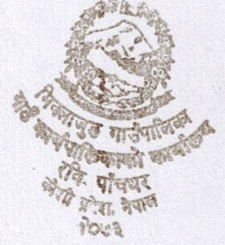 मिक्लाजुङ गाउँपालिका
गाउँ कार्यपालिकाको कार्यालय
रवि, पाँचथर
कोशी प्रदेश, नेपाल
२०७३